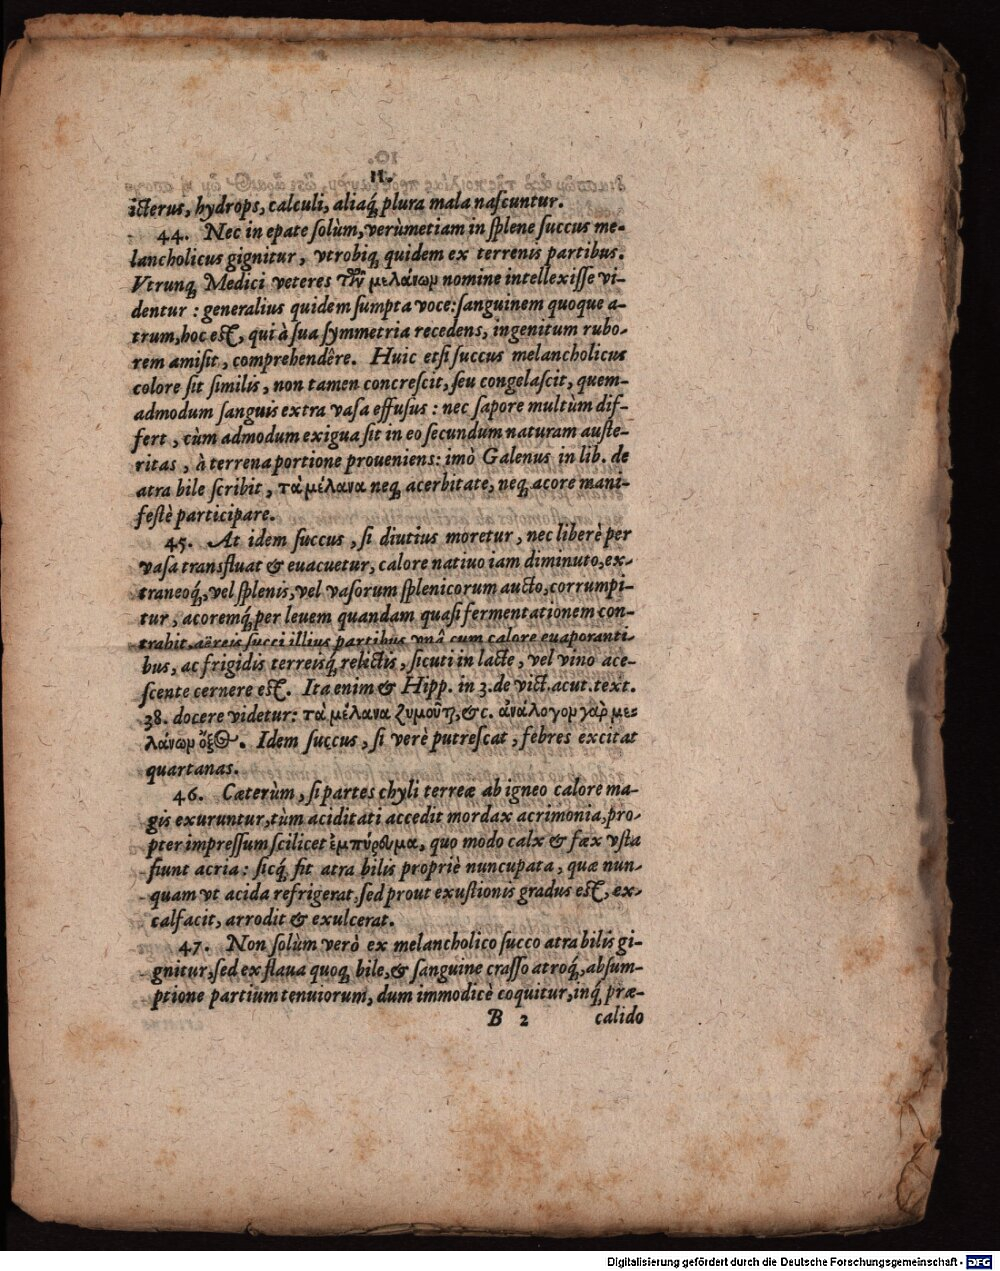 11.
icterus, hydrops, calculi, aliaq́; plura mala naſcuntur.
44. Nec in epate ſolùm, verùm etiam in ſplene ſuccus me-
lancholicus gignitur, vtrobiq; quidem ex terrenis partibus.
Vtrunq; Medici veteres τῶν μελάνων nomine intellexiſſe vi-
dentur : generalius quidem ſumpta voce: ſanguinem quoque a-
trum, hoc eſt, qui à ſua ſymmetria recedens, ingenitum rubo-
rem amiſit, comprehendêre. Huic etſi ſuccus melancholicus
colore ſit ſimilis, non tamen concreſcit, ſeu congelaſcit, quem-
admodum ſanguis extra vaſa effuſus : nec ſapore multùm dif-
fert, cùm admodum exigua ſit in eo ſecundum naturam auſte-
ritas, à terrena portione proueniens: imò Galenus in lib. de
atra bile ſcribit, τὰ μέλανα neq; acerbitate, neq; acore mani-
feſtè participare.
45. At idem ſuccus, ſi diutius moretur, nec liberè per
vaſa transfluat & euacuetur, calore natiuo iam diminuto, ex-
traneoq́;, vel ſplenis, vel vaſorum ſplenicorum aucto, corrumpi-
tur, acoremq́; per leuem quandam quaſi fermentationem con-
trahit, aëreis ſucci illius partibus vnâ cum calore euaporanti-
bus, ac frigidis terreisq́; relictis, ſicuti in lacte, vel vino ace-
ſcente cernere eſt. Ita enim & Hipp. in 3. de vict. acut. text.
38. docere videtur: τὰ μέλανα ζυμοῦτ, &c. ἀνάλογον γὰρ με-
λάνων ὄξος. Idem ſuccus, ſi verè putreſcat, febres excitat
quartanas.
46. Cæterùm, ſi partes chyli terreæ ab igneo calore ma-
gis exuruntur, tùm aciditati accedit mordax acrimonia, pro-
pter impreſſum ſcilicet ἐμπύρευμα, quo modo calx & fæx vſta
fiunt acria : ſicq́; fit atra bilis propriè nuncupata, quæ nun-
quam vt acida refrigerat, ſed prout exuſtionis gradus eſt, ex-
calfacit, arrodit & exulcerat.
47. Non ſolùm verò ex melancholico ſucco atra bilis gi-
gnitur, ſed ex flaua quoq; bile, & ſanguine craſſo atroq́;, abſum-
ptione partium tenuiorum, dum immodicè coquitur, inq́; præ-
B 2 calido
Digitalisierung gefördert durch die Deutsche Forschungsgemeinschaft - DFG